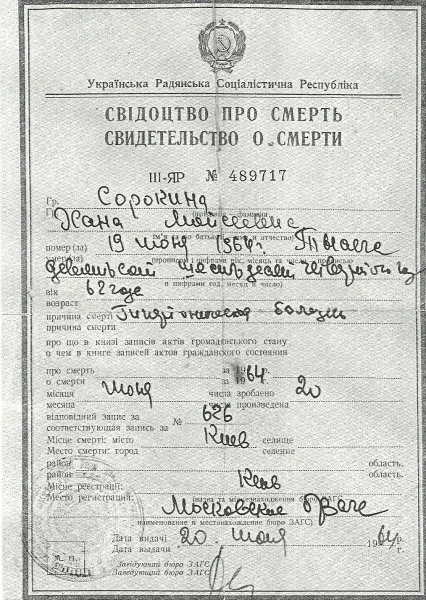 Українська Радянська Соціалістична Республіка
СВІДОЦТВО ПРО СМЕРТЬ
СВИДЕТЕЛЬСТВО О СМЕРТИ
III-ЯР № 489717
Гр. Сорокина
Гр.
Хана Мойсеевна
номер (ла) 19 июня 1964г. Тысяча
умер (ла)
девятьсот шестьдесят четвертого года
и цифрами год, месяц и число)
вік 62 года
возраст
причина смерті Гипертоническая болезнь
причина смерти
про що в книзі записів актів громадянського стану
о чем в книге записей актов гражданского состояния
про смерть за 1964 г.
о смерти за 19
місяця июня числа зроблено 20
месяца числа произведена
відповідний запис за № 626
соответствующая запись за
Місце смерті: місто Киев селище
Место смерти: город селение
район область.
район область.
Місце реєстрації: Киев
Место регистрации:
Московское рЗАГС
наименование и местонахождение бюро ЗАГС)
Дата видачі 20 июня 1964 р.
Дата выдачи г.
Завідуючий бюро ЗАГС
Заведующий бюро ЗАГС